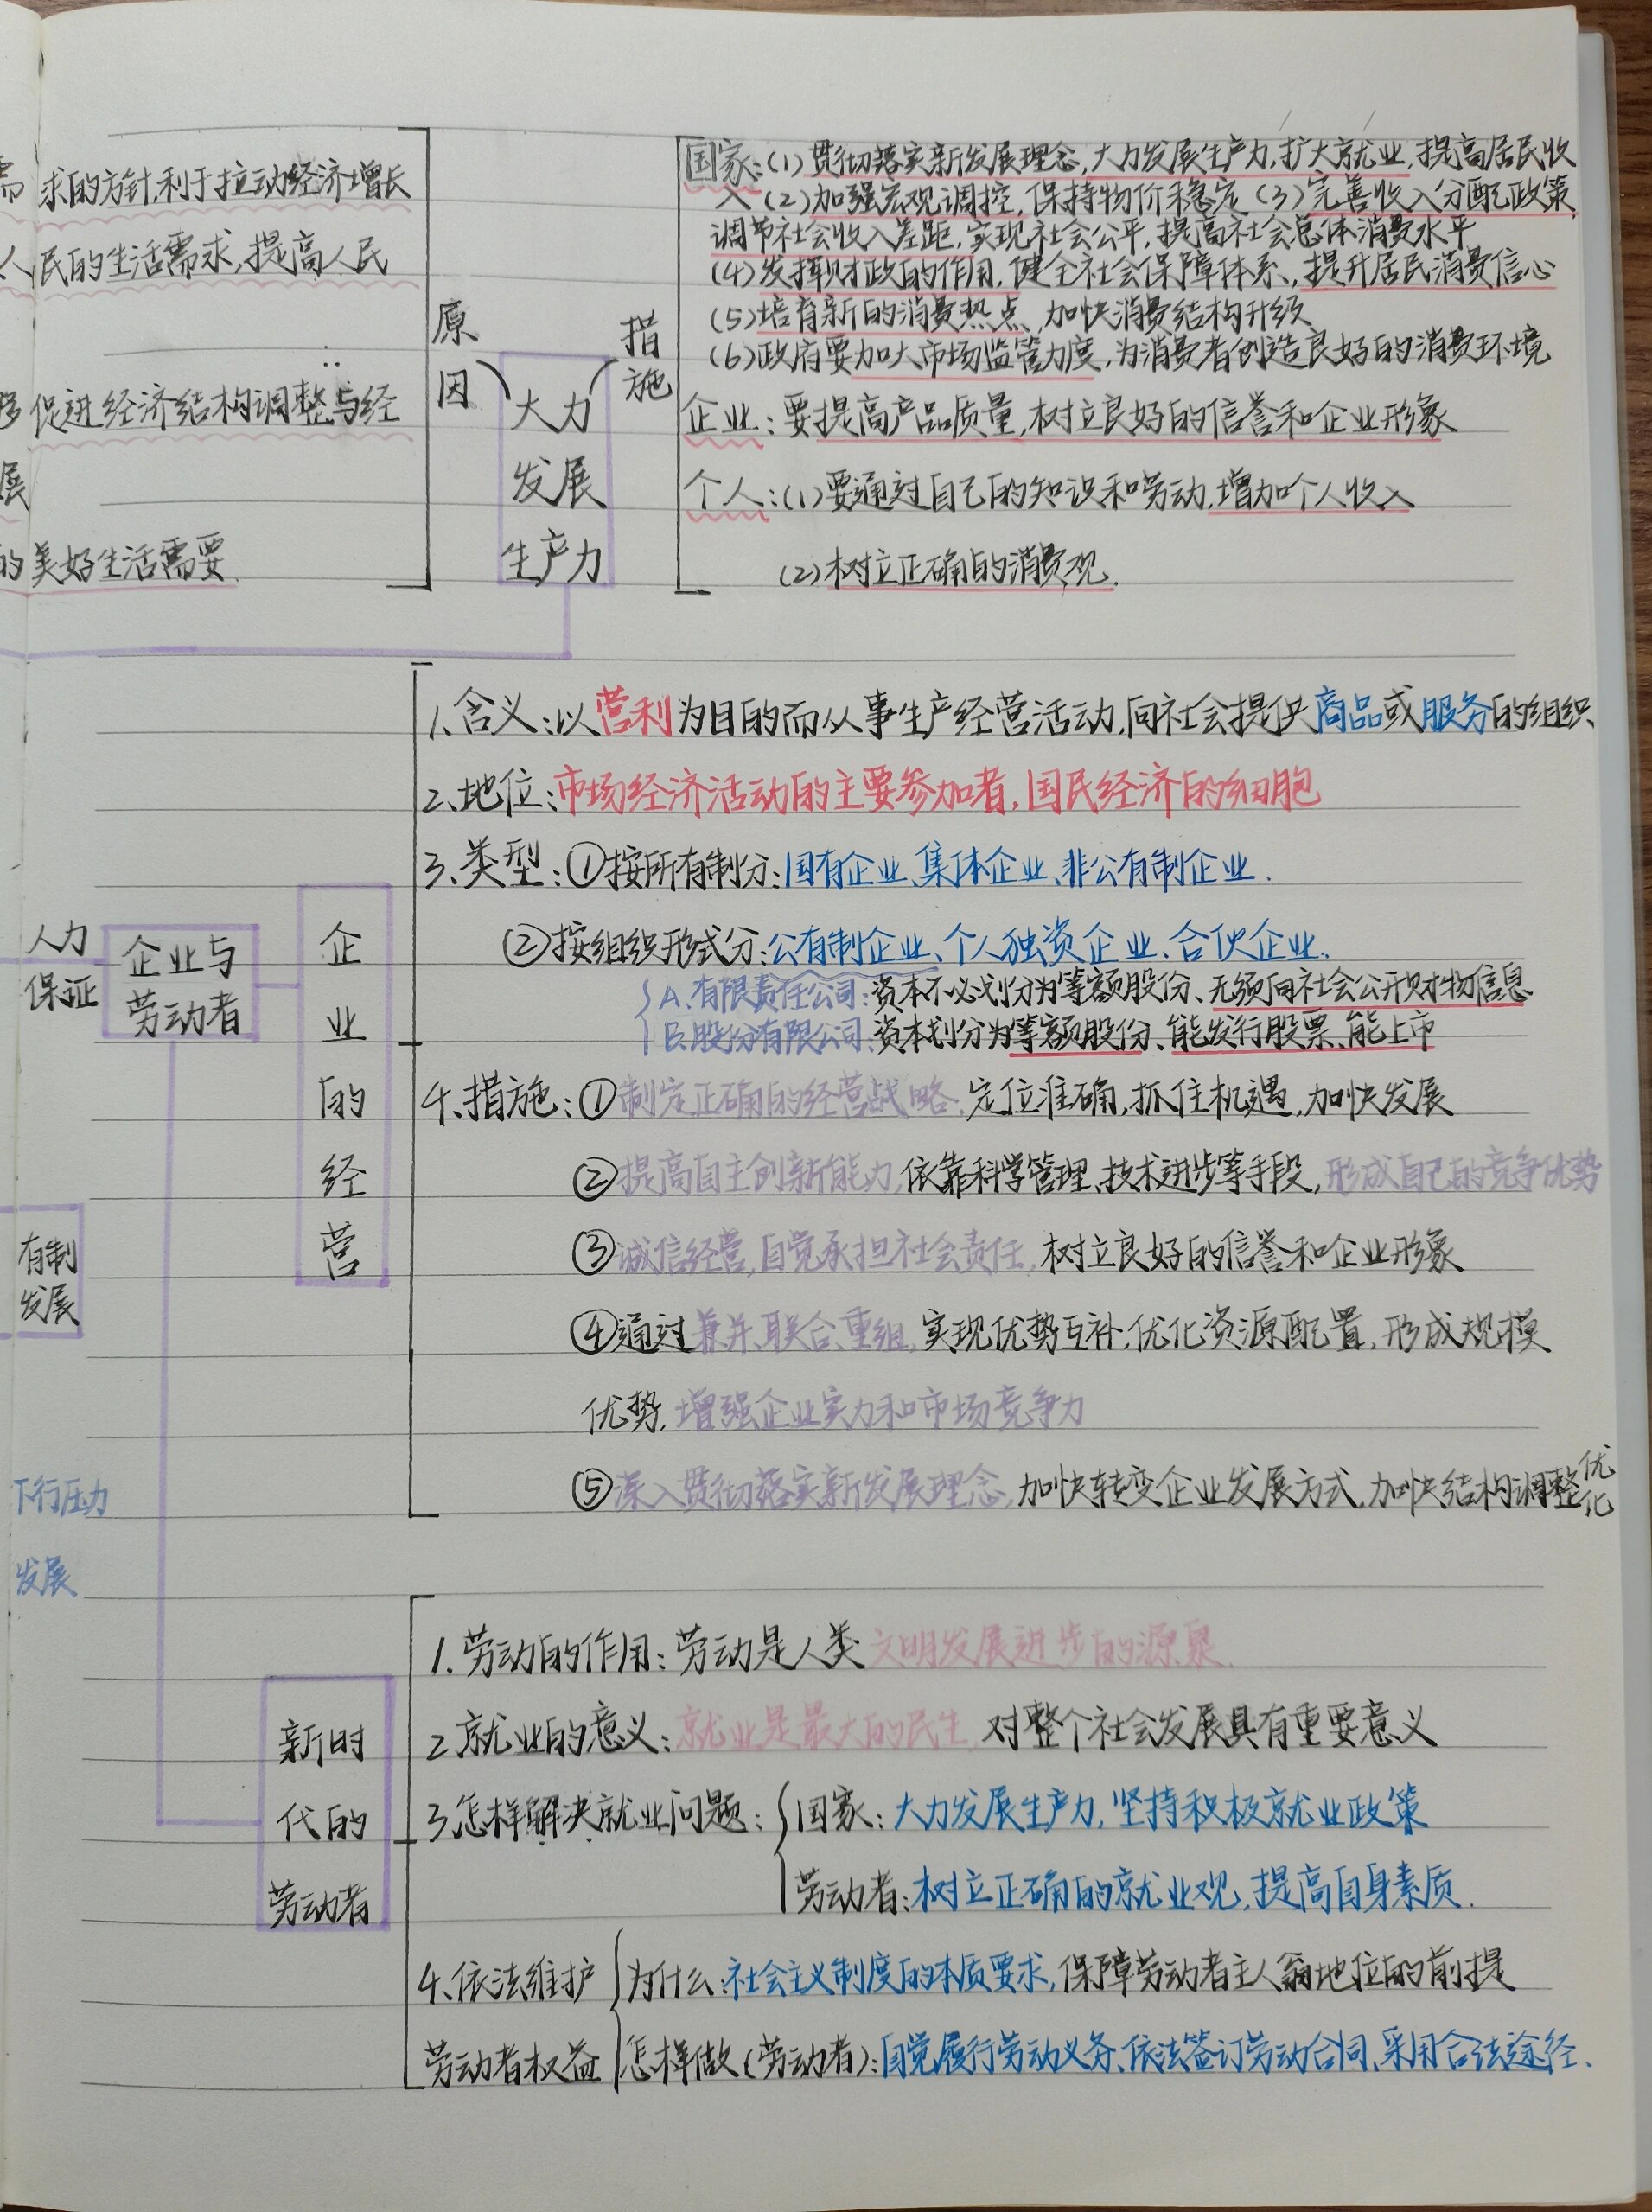 需求的方针,利于拉动经济增长
人民的生活需求,提高人民
促进经济结构调整与经
展
的美好生活需要.
原因
大力
发展
生产力
措施
国家:(1)贯彻落实新发展理念,大力发展生产力,扩大就业,提高居民收
入(2)加强宏观调控,保持物价稳定(3)完善收入分配政策,
调节社会收入差距,实现社会公平,提高社会总体消费水平
(4)发挥财政的作用,健全社会保障体系,提升居民消费信心
(5)培育新的消费热点,加快消费结构升级
(6)政府要加大市场监管力度,为消费者创造良好的消费环境
企业:要提高产品质量,树立良好的信誉和企业形象
个人:(1)要通过自己的知识和劳动,增加个人收入
(2)树立正确的消费观.
人力
保证
企业与
劳动者
企业的经营
1、含义:以营利为目的而从事生产经营活动,向社会提供商品或服务的组织
2、地位:市场经济活动的主要参加者,国民经济的细胞
3、类型:①按所有制分:国有企业、集体企业、非公有制企业.
②按组织形式分:公有制企业、个人独资企业、合伙企业.
A.有限责任公司:资本不必划分为等额股份、无须向社会公开财物信息
B.股份有限公司:资本划分为等额股份、能发行股票、能上市
4、措施:①制定正确的经营战略,定位准确,抓住机遇,加快发展
②提高自主创新能力,依靠科学管理、技术进步等手段,形成自己的竞争优势
③诚信经营,自觉承担社会责任,树立良好的信誉和企业形象
④通过兼并、联合、重组,实现优势互补,优化资源配置,形成规模
优势,增强企业实力和市场竞争力
⑤深入贯彻落实新发展理念,加快转变企业发展方式,加快结构调整优化
有制
发展
下行压力
发展
新时
代的
劳动者
1.劳动的作用:劳动是人类文明发展进步的源泉.
2.就业的意义:就业是最大的民生,对整个社会发展具有重要意义
3.怎样解决就业问题:国家:大力发展生产力,坚持积极就业政策
劳动者:树立正确的就业观,提高自身素质.
4、依法维护
劳动者权益
为什么:社会主义制度的本质要求,保障劳动者主人翁地位的前提
怎样做(劳动者):自觉履行劳动义务、依法签订劳动合同、采用合法途径、